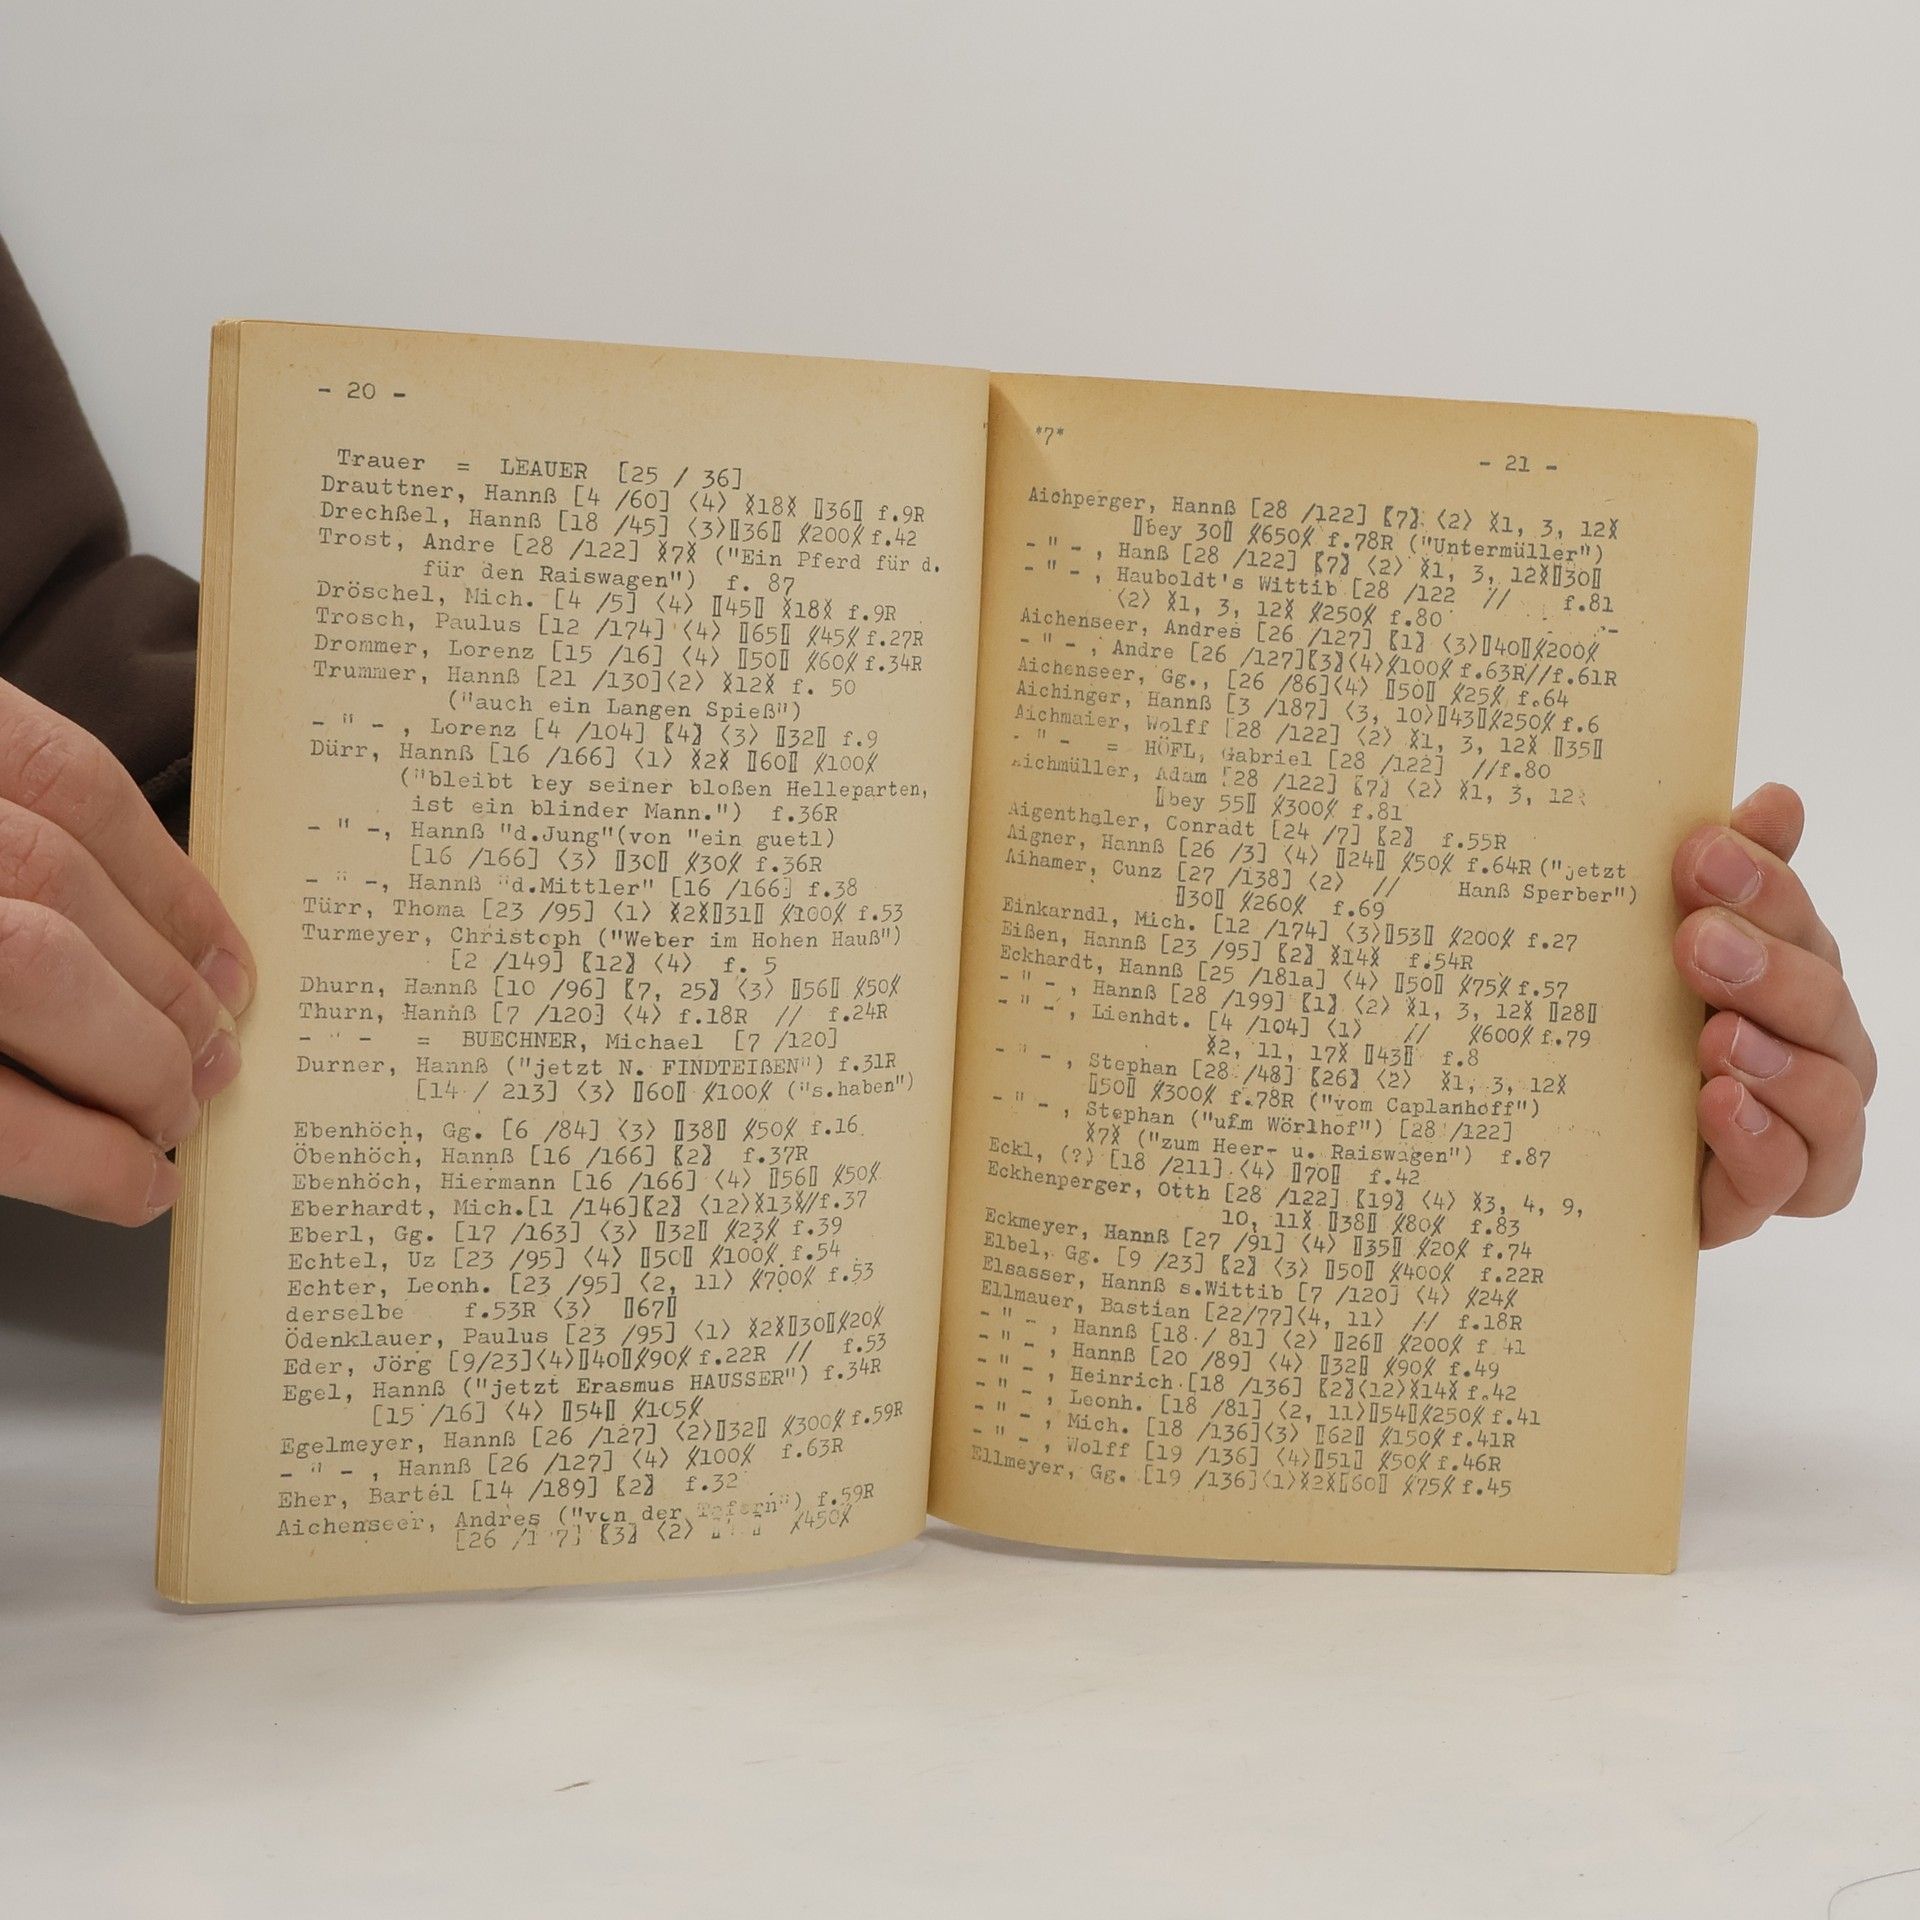 - 20 -
Trauer = LEAUER [25 / 36]
Drauttner, Hannß [4 /60] 〈4〉 ꁘ18ꁘ 〚36〛 f.9R
Drechßel, Hannß [18 /45] 〈3〉〚36〛 ⁒200⁒ f.42
Trost, Andre [28 /122] ꁘ7ꁘ ("Ein Pferd für d.
für den Raiswagen") f. 87
Dröschel, Mich. [4 /5] 〈4〉 〚45〛 ꁘ18ꁘ f.9R
Trosch, Paulus [12 /174] 〈4〉 〚65〛 ⁒45⁒ f.27R
Drommer, Lorenz [15 /16] 〈4〉 〚50〛 ⁒60⁒ f.34R
Trummer, Hannß [21 /130]〈2〉 ꁘ12ꁘ f. 50
("auch ein Langen Spieß")
- " - , Lorenz [4 /104] 〖4〗 〈3〉 〚32〛 f.9
Dürr, Hannß [16 /166] 〈1〉 ꁘ2ꁘ 〚60〛 ⁒100⁒
("bleibt bey seiner bloßen Helleparten,
ist ein blinder Mann.") f.36R
- " -, Hannß "d.Jung"(von "ein guetl)
[16 /166] 〈3〉 〚30〛 ⁒30⁒ f.36R
- " -, Hannß "d.Mittler" [16 /166] f.38
Türr, Thoma [23 /95] 〈1〉 ꁘ2ꁘ〚31〛 ⁒100⁒ f.53
Turmeyer, Christoph ("Weber im Hohen Hauß")
[2 /149] 〖12〗 〈4〉 f. 5
Dhurn, Hannß [10 /96] 〖7, 25〗 〈3〉 〚56〛 ⁒50⁒
Thurn, Hannß [7 /120] 〈4〉 f.18R // f.24R
- " - = BUECHNER, Michael [7 /120]
Durner, Hannß ("jetzt N. FINDTEIßEN") f.31R
[14 / 213] 〈3〉 〚60〛 ⁒100⁒ ("s.haben")
Ebenhöch, Gg. [6 /84] 〈3〉 〚38〛 ⁒50⁒ f.16
Öbenhöch, Hannß [16 /166] 〖2〗 f.37R
Ebenhöch, Hiermann [16 /166] 〈4〉 〚56〛 ⁒50⁒
Eberhardt, Mich.[1 /146]〖2〗 〈12〉ꁘ13ꁘ//f.37
Eberl, Gg. [17 /163] 〈3〉 〚32〛 ⁒23⁒ f.39
Echtel, Uz [23 /95] 〈4〉 〚50〛 ⁒100⁒ f.54
Echter, Leonh. [23 /95] 〈2, 11〉 ⁒700⁒ f.53
derselbe f.53R 〈3〉 〚67〛
Ödenklauer, Paulus [23 /95] 〈1〉 ꁘ2ꁘ〚30〛⁒20⁒
Eder, Jörg [9/23]〈4〉〚40〛⁒90⁒ f.22R // f.53
Egel, Hannß ("jetzt Erasmus HAUSSER") f.34R
[15 /16] 〈4〉 〚54〛 ⁒105⁒
Egelmeyer, Hannß [26 /127] 〈2〉〚32〛 ⁒300⁒ f.59R
- " - , Hannß [26 /127] 〈4〉 ⁒100⁒ f.63R
Eher, Bartel [14 /189] 〖2〗 f.32
Aichenseer, Andres ("von der Tafern") f.59R
[26 /1 7] 〖3〗 〈2〉 ⁒450⁒
*7*
- 21 -
Aichperger, Hannß [28 /122] 〖7〗 〈2〉 ꁘ1, 3, 12ꁘ
〚bey 30〛 ⁒650⁒ f.78R ("Untermüller")
- " - , Hanß [28 /122] 〖7〗 〈2〉 ꁘ1, 3, 12ꁘ〚30〛
- " - , Hauboldt's Wittib [28 /122 // f.81
〈2〉 ꁘ1, 3, 12ꁘ ⁒250⁒ f.80
Aichenseer, Andres [26 /127] 〖1〗 〈3〉〚40〛⁒200⁒
- " - , Andre [26 /127]〖3〗〈4〉⁒100⁒ f.63R//f.61R
Aichenseer, Gg., [26 /86]〈4〉 〚50〛 ⁒25⁒ f.64
Aichinger, Hannß [3 /187] 〈3, 10〉〚43〛⁒250⁒ f.6
Aichmaier, Wolff [28 /122] 〈2〉 ꁘ1, 3, 12ꁘ 〚35〛
- " - = HÖFL, Gabriel [28 /122] //f.80
Aichmüller, Adam [28 /122] 〖7〗 〈2〉 ꁘ1, 3, 12ꁘ
〚bey 55〛 ⁒300⁒ f.81
Aigenthaler, Conradt [24 /7] 〖2〗 f.55R
Aigner, Hannß [26 /3] 〈4〉 〚24〛 ⁒50⁒ f.64R ("jetzt
Aihamer, Cunz [27 /138] 〈2〉 // Hanß Sperber")
〚30〛 ⁒260⁒ f.69
Einkarndl, Mich. [12 /174] 〈3〉〚53〛 ⁒200⁒ f.27
Eißen, Hannß [23 /95] 〖2〗 ꁘ14ꁘ f.54R
Eckhardt, Hannß [25 /181a] 〈4〉 〚50〛 ⁒75⁒ f.57
- " - , Hannß [28 /199] 〖1〗 〈2〉 ꁘ1, 3, 12ꁘ 〚28〛
- " - , Lienhdt. [4 /104] 〈1〉 // ⁒600⁒ f.79
ꁘ2, 11, 17ꁘ 〚43〛 f.8
- " - , Stephan [28 /48] 〖26〗 〈2〉 ꁘ1, 3, 12ꁘ
〚50〛 ⁒300⁒ f.78R ("vom Caplanhoff")
- " - , Stephan ("ufm Wörlhof") [28 /122]
ꁘ7ꁘ ("zum Heer- u. Raiswagen") f.87
Eckl, (?) [18 /211] 〈4〉 〚70〛 f.42
Eckhenperger, Otth [28 /122] 〖19〗 〈4〉 ꁘ3, 4, 9,
10, 11ꁘ 〚38〛 ⁒80⁒ f.83
Eckmeyer, Hannß [27 /91] 〈4〉 〚35〛 ⁒20⁒ f.74
Elbel, Gg. [9 /23] 〖2〗 〈3〉 〚50〛 ⁒400⁒ f.22R
Elsasser, Hannß s.Wittib [7 /120] 〈4〉 ⁒24⁒
Ellmauer, Bastian [22/77]〈4, 11〉 // f.18R
- " - , Hannß [18 / 81] 〈2〉 〚26〛 ⁒200⁒ f 41
- " - , Hannß [20 /89] 〈4〉 〚32〛 ⁒90⁒ f.49
- " - , Heinrich [18 /136] 〖2〗〈12〉ꁘ14ꁘ f.42
- " - , Leonh. [18 /81] 〈2, 11〉〚54〛⁒250⁒ f.41
- " - , Mich. [18 /136]〈3〉 〚62〛 ⁒150⁒ f.41R
- " - , Wolff [19 /136] 〈4〉〚51〛 ⁒50⁒ f.46R
Ellmeyer, Gg. [19 /136]〈1〉ꁘ2ꁘ〚60〛 ⁒75⁒ f.45